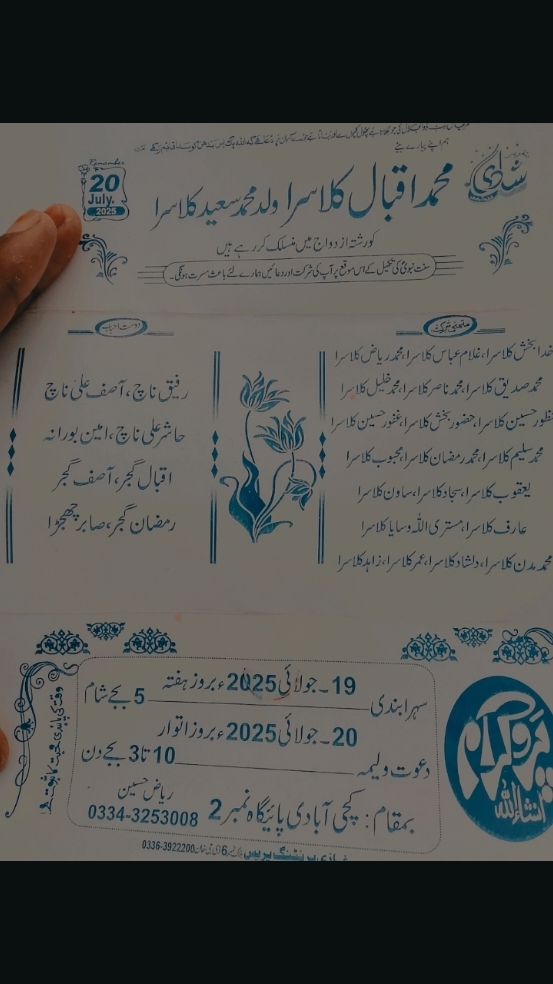 ہم اپنے پیارے بیٹے
Remember
20
July.
2025
شادی
محمد اقبال کلاسرا ولد محمد سعید کلاسرا
کو رشتہ ازدواج میں منسلک کر رہے ہیں
سنت نبویؐ کی تکمیل کے اس موقع پر آپ کی شرکت اور دعائیں ہمارے لئے باعث مسرت ہونگی۔
متمنی شرکت
خدا بخش کلاسرا، غلام عباس کلاسرا، محمد ریاض کلاسرا
محمد صدیق کلاسرا، محمد ناصر کلاسرا، محمد خلیل کلاسرا
منظور حسین کلاسرا، حضور بخش کلاسرا، غفور حسین کلاسرا
محمد سلیم کلاسرا، محمد رمضان کلاسرا، محبوب کلاسرا
یعقوب کلاسرا، سجاد کلاسرا، ساون کلاسرا
عارف کلاسرا، مستری اللہ وسایا کلاسرا
محمد مدن کلاسرا، دلشاد کلاسرا، عمر کلاسرا، زاہد کلاسرا
دوست احباب
رفیق ناچ، آصف علی ناچ
حاشر علی ناچ، امین بورانہ
اقبال گجر، آصف گجر
رمضان گجر، صابر چھجڑا
پروگرام
انشاءاللہ
سہرا بندی 19۔ جولائی 2025ء بروز ہفتہ 5 بجے شام
دعوت ولیمہ 20۔ جولائی 2025ء بروز اتوار 10 تا 3 بجے دن
بمقام: کچی آبادی پائیگاہ نمبر 2
ریاض حسین
0334-3253008
وقت کی پابندی محبت کا ثبوت ہے
غازی پرنٹنگ پریس 0336-3922200